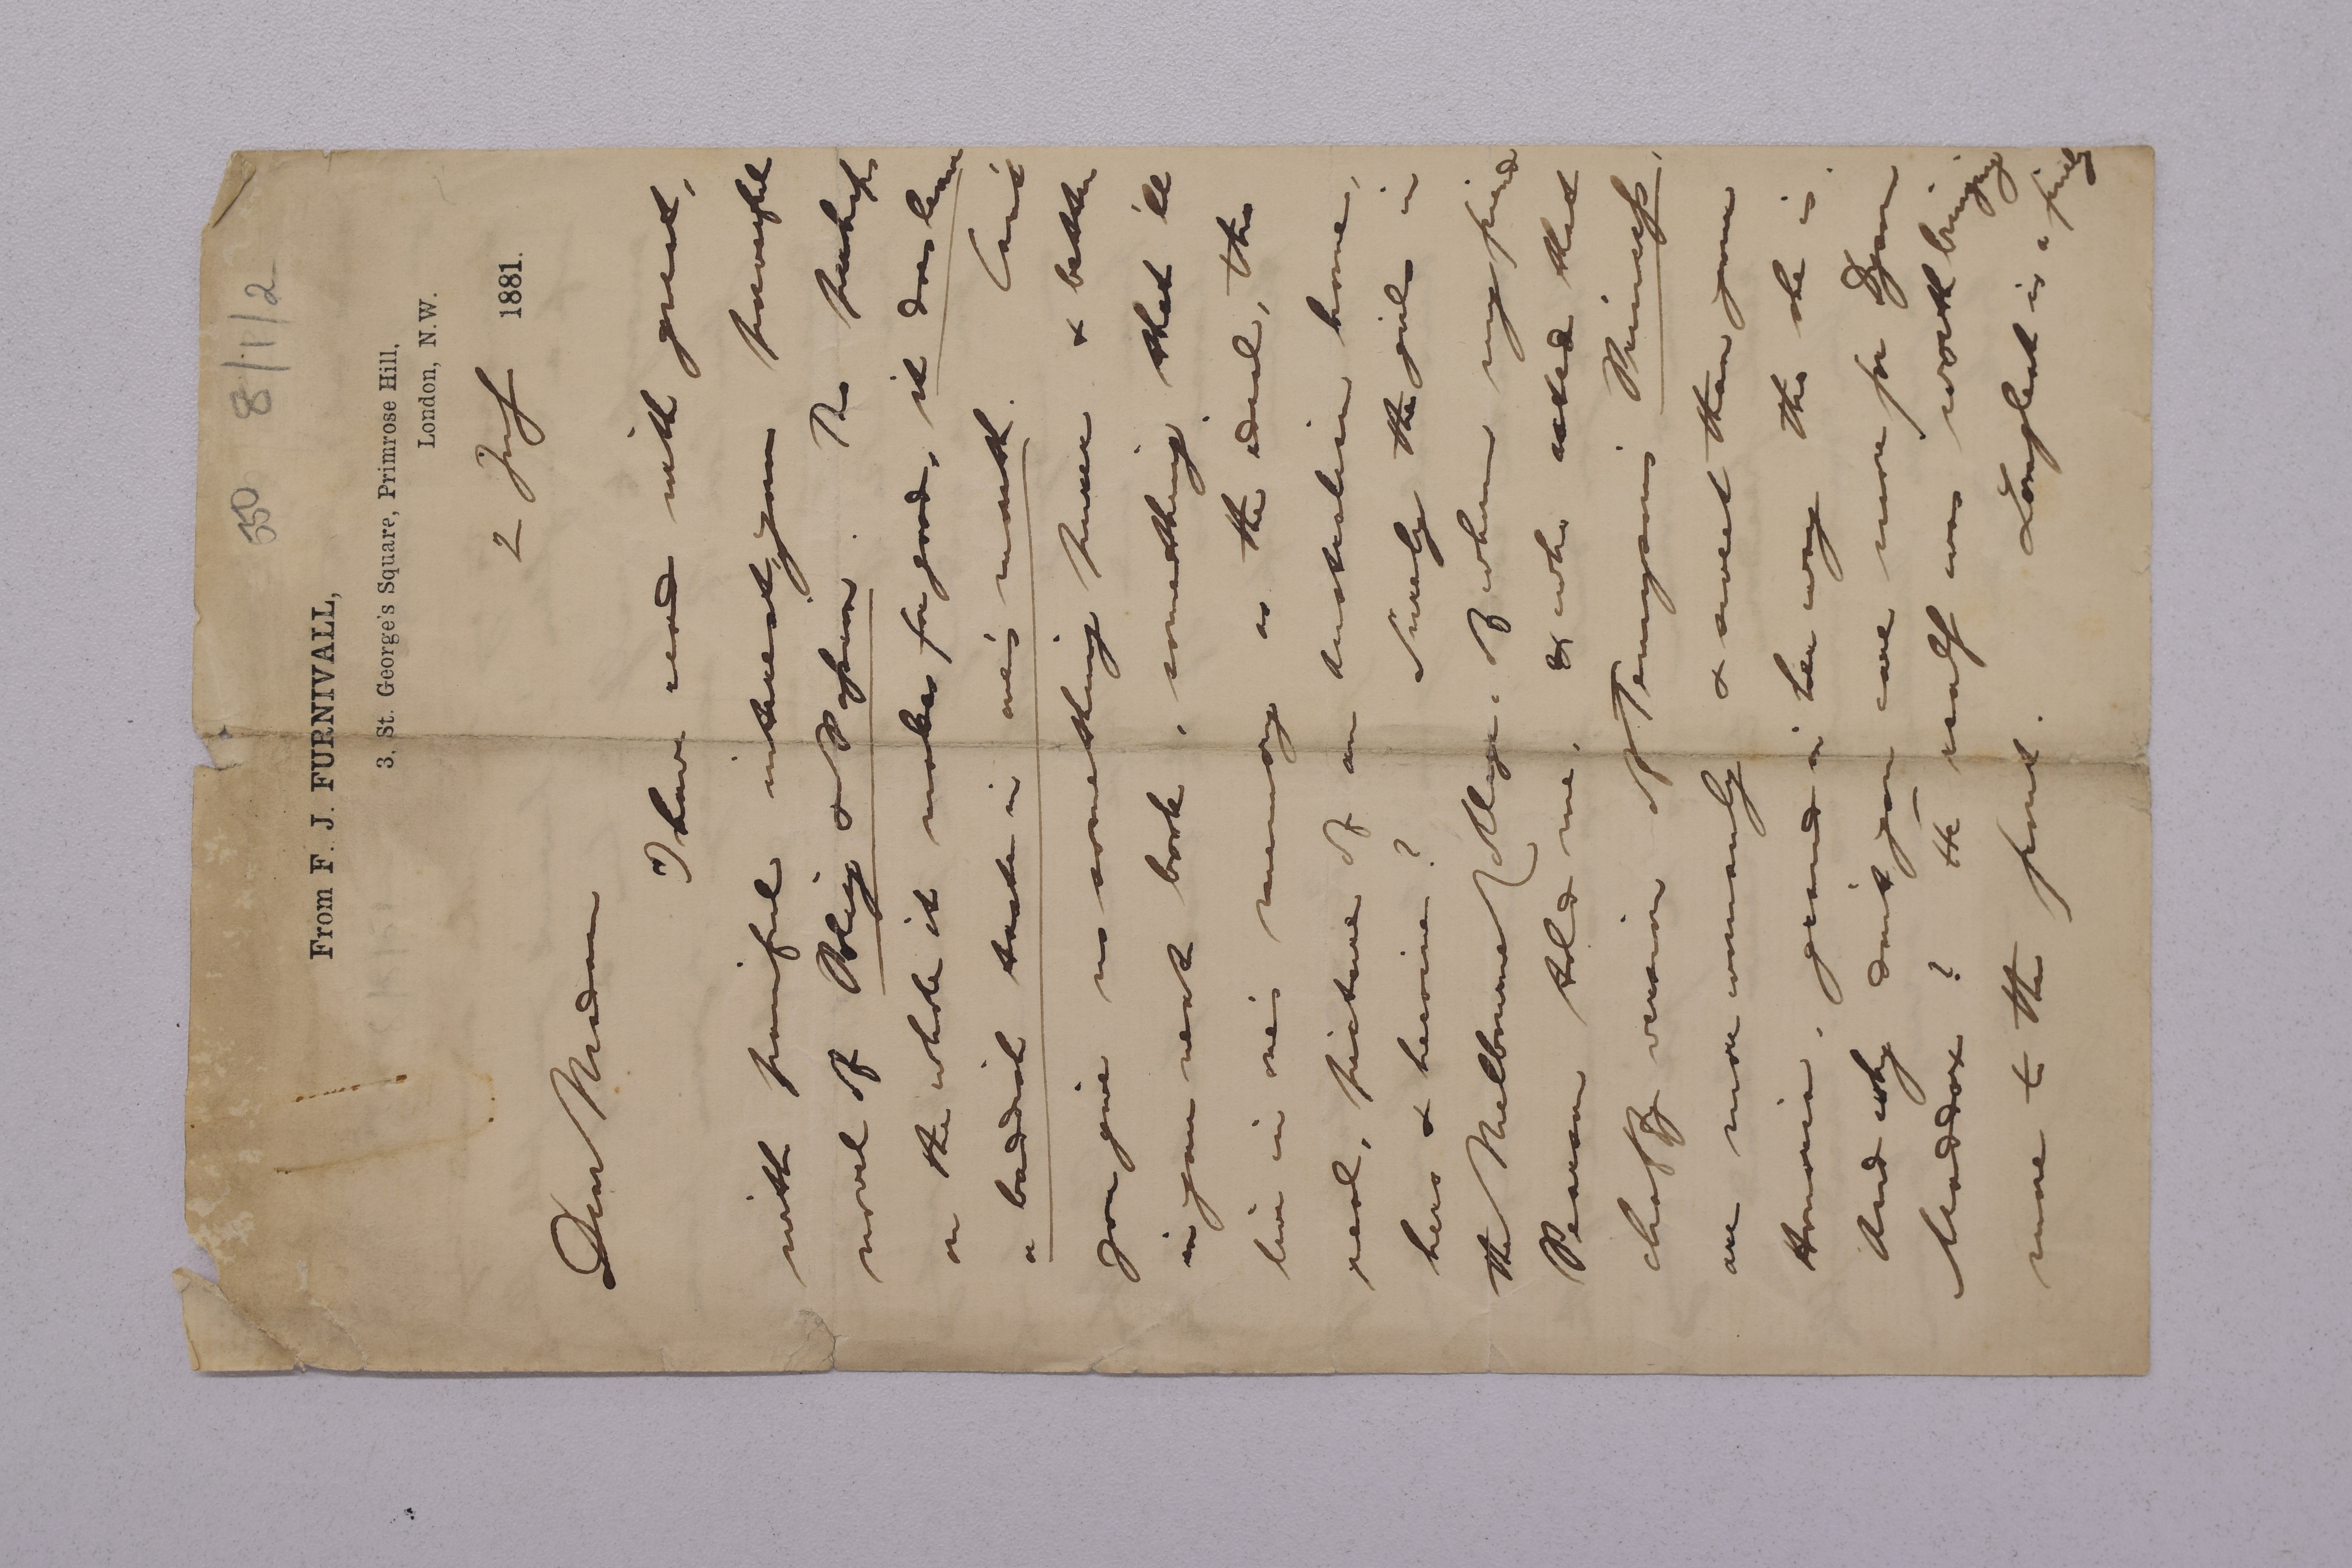 550 8/1/2
From F. J. FURNIVALL,
3, St. George's Square, Primrose Hill,
London, N.W.
2 1881.
Dear Madam
I have read with great,
with painful interest, your powerful
novel of Policy & Passion. Tho perhaps
on the whole it makes for good, it does leave
a baddish taste in one's mouth. Can't
you give us something purer & better
in your next book, something that 'll
live in one's memory as the ideal, tho
real, picture of an Australian home,
hero & heroine? Surely the girls in
the Melbourne College, of whom my friend
Pearson told me, & who acted that
chaffy version of Tennyson's Princess,
are more womanly & sweet than your
Honoria, grand in her way tho she is.
And why don't you care more for Dyson
Maddox? He really was worth bringing
more to the front. Longleat is a finely